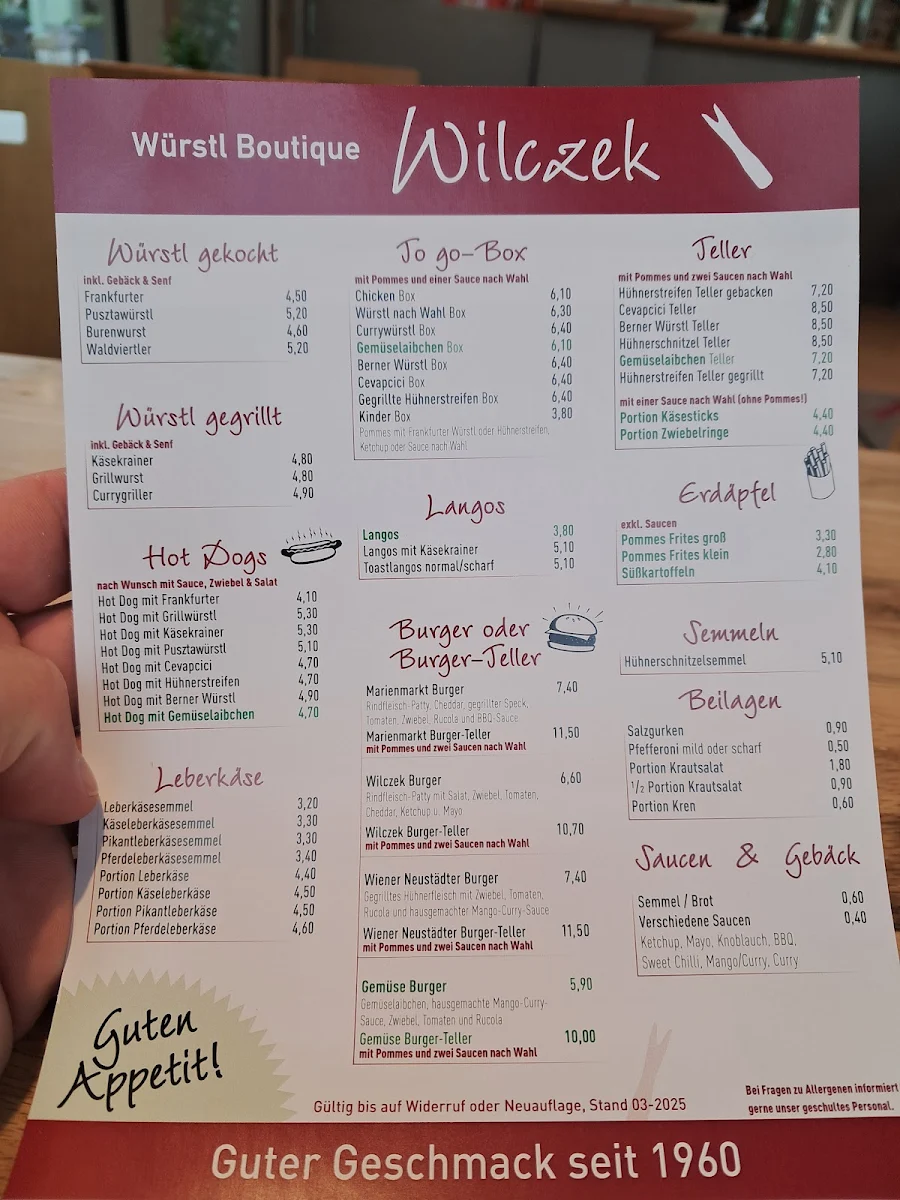 Würstl Boutique Wilczek
Würstl gekocht
inkl. Gebäck & Senf
Frankfurter 4,50
Pusztawürstl 5,20
Burenwurst 4,60
Waldviertler 5,20
Würstl gegrillt
inkl. Gebäck & Senf
Käsekrainer 4,80
Grillwurst 4,80
Currygriller 4,90
Hot Dogs
nach Wunsch mit Sauce, Zwiebel & Salat
Hot Dog mit Frankfurter 4,10
Hot Dog mit Grillwürstl 5,30
Hot Dog mit Käsekrainer 5,30
Hot Dog mit Pusztawürstl 5,10
Hot Dog mit Cevapcici 4,70
Hot Dog mit Hühnerstreifen 4,70
Hot Dog mit Berner Würstl 4,90
Hot Dog mit Gemüselaibchen 4,70
Leberkäse
Leberkäsesemmel 3,20
Käseleberkäsesemmel 3,30
Pikantleberkäsesemmel 3,30
Pferdeleberkäsesemmel 3,40
Portion Leberkäse 4,40
Portion Käseleberkäse 4,50
Portion Pikantleberkäse 4,50
Portion Pferdeleberkäse 4,60
Guten
Appetit!
To go-Box
mit Pommes und einer Sauce nach Wahl
Chicken Box 6,10
Würstl nach Wahl Box 6,30
Currywürstl Box 6,40
Gemüselaibchen Box 6,10
Berner Würstl Box 6,40
Cevapcici Box 6,40
Gegrillte Hühnerstreifen Box 6,40
Kinder Box 3,80
Pommes mit Frankfurter Würstl oder Hühnerstreifen,
Ketchup oder Sauce nach Wahl
Langos
Langos 3,80
Langos mit Käsekrainer 5,10
Toastlangos normal/scharf 5,10
Burger oder
Burger-Teller
Marienmarkt Burger 7,40
Rindfleisch-Patty, Cheddar, gegrillter Speck,
Tomaten, Zwiebel, Rucola und BBQ-Sauce
Marienmarkt Burger-Teller 11,50
mit Pommes und zwei Saucen nach Wahl
Wilczek Burger 6,60
Rindfleisch-Patty mit Salat, Zwiebel, Tomaten,
Cheddar, Ketchup u. Mayo
Wilczek Burger-Teller 10,70
mit Pommes und zwei Saucen nach Wahl
Wiener Neustädter Burger 7,40
Gegrilltes Hühnerfleisch mit Zwiebel, Tomaten,
Rucola und hausgemachter Mango-Curry-Sauce
Wiener Neustädter Burger-Teller 11,50
mit Pommes und zwei Saucen nach Wahl
Gemüse Burger 5,90
Gemüselaibchen, hausgemachte Mango-Curry-
Sauce, Zwiebel, Tomaten und Rucola
Gemüse Burger-Teller 10,00
mit Pommes und zwei Saucen nach Wahl
Teller
mit Pommes und zwei Saucen nach Wahl
Hühnerstreifen Teller gebacken 7,20
Cevapcici Teller 8,50
Berner Würstl Teller 8,50
Hühnerschnitzel Teller 8,50
Gemüselaibchen Teller 7,20
Hühnerstreifen Teller gegrillt 7,20
mit einer Sauce nach Wahl (ohne Pommes!)
Portion Käsesticks 4,40
Portion Zwiebelringe 4,40
Erdäpfel
exkl. Saucen
Pommes Frites groß 3,30
Pommes Frites klein 2,80
Süßkartoffeln 4,10
Semmeln
Hühnerschnitzelsemmel 5,10
Beilagen
Salzgurken 0,90
Pfefferoni mild oder scharf 0,50
Portion Krautsalat 1,80
1/2 Portion Krautsalat 0,90
Portion Kren 0,60
Saucen & Gebäck
Semmel / Brot 0,60
Verschiedene Saucen 0,40
Ketchup, Mayo, Knoblauch, BBQ,
Sweet Chilli, Mango/Curry, Curry
Gültig bis auf Widerruf oder Neuauflage, Stand 03-2025
Bei Fragen zu Allergenen informiert
gerne unser geschultes Personal.
Guter Geschmack seit 1960